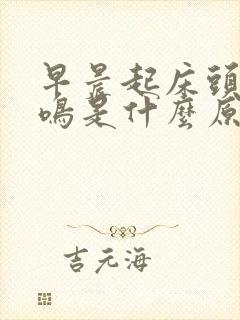 早晨起床頭
鳴是什麼原
吉元海